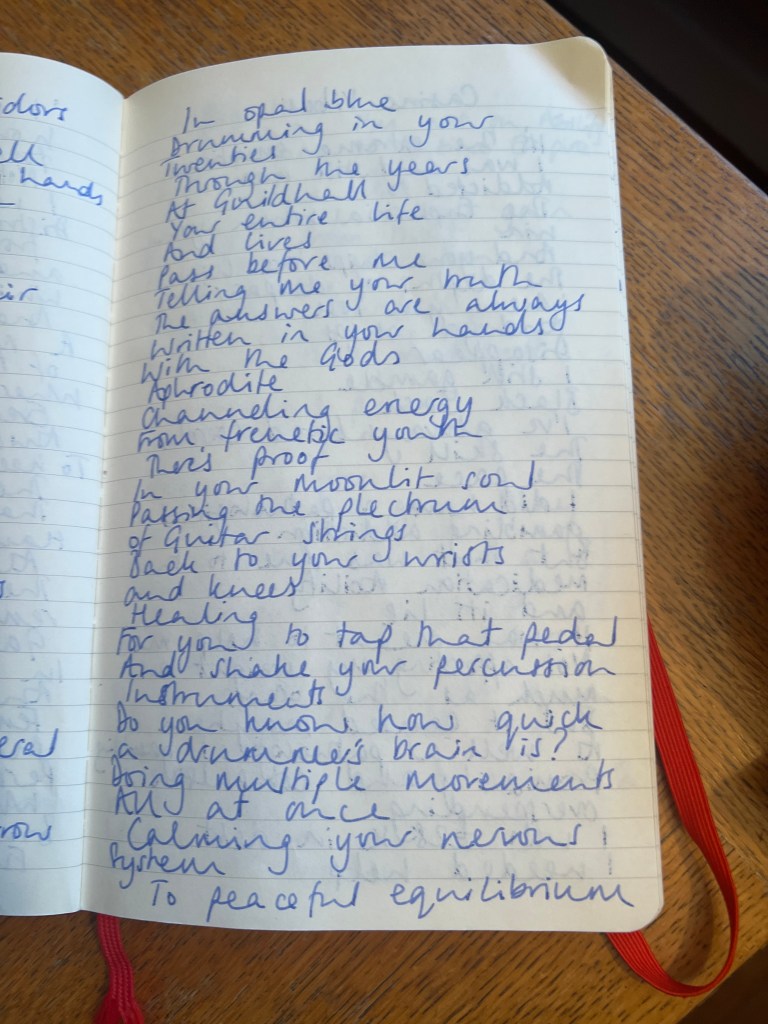 idors
ell
hands
eir
eral
rows
In opal blue
Drumming in your
Twenties
Through the years
At Guildhall
Your entire life
And lives
Pass before me
Telling me your truth
The answers are always
Written in your hands
With the Gods
Aphrodite
Channeling energy
From frenetic youth
There's proof
In your moonlit soul
Passing the plectrum
of Guitar strings
Back to your wrists
and knees
Healing
For you to tap that pedal
And shake your percussion
Instruments
Do you know how quick
a drummer's brain is?
Doing multiple movements
All at once
Calming your nervous
System
To peaceful equilibrium